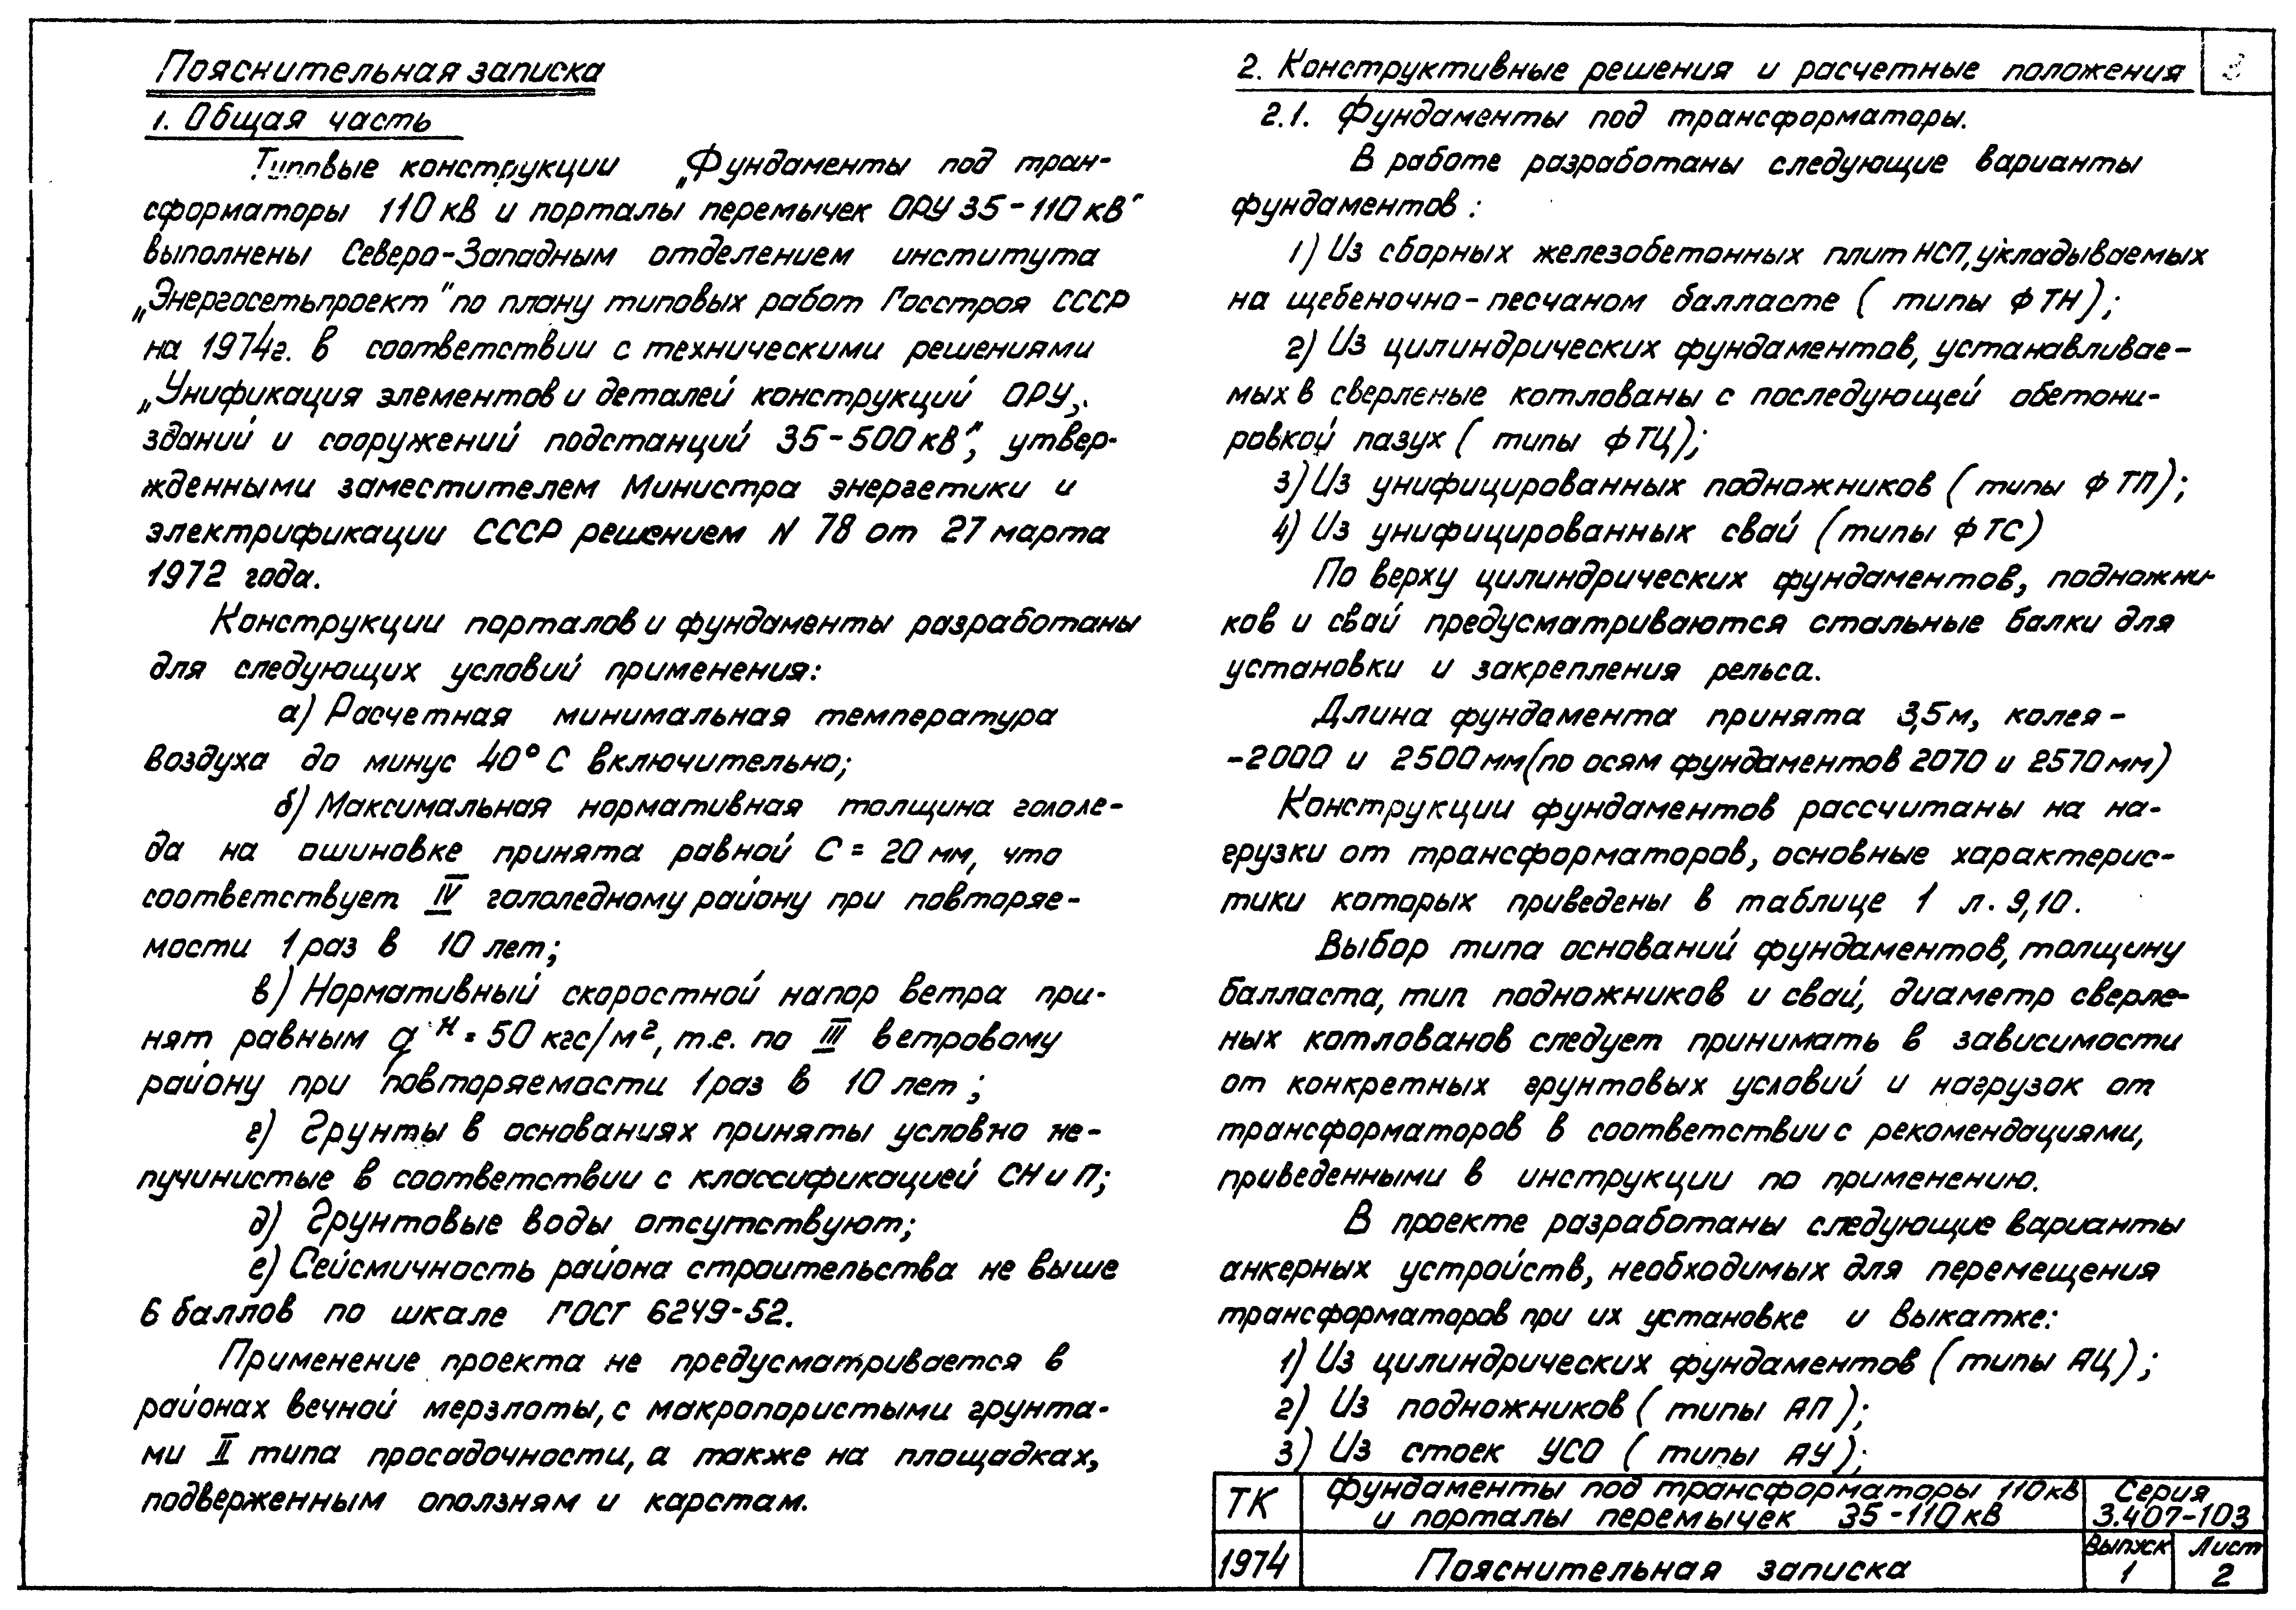 Пояснительная записка
1. Общая часть
Типовые конструкции „Фундаменты под тран-
сформаторы 110 кВ и порталы перемычек ОРУ 35-110 кВ"
выполнены Северо-Западным отделением института
„Энергосетьпроект" по плану типовых работ Госстроя СССР
на 1974г. в соответствии с техническими решениями
„Унификация элементов и деталей конструкций ОРУ,
зданий и сооружений подстанций 35-500 кВ", утвер-
жденными заместителем Министра энергетики и
электрификации СССР решением N 78 от 27 марта
1972 года.
Конструкции порталов и фундаменты разработаны
для следующих условий применения:
а) Расчетная минимальная температура
воздуха до минус 40°С включительно;
б) Максимальная нормативная толщина гололе-
да на ошиновке принята равной С = 20 мм, что
соответствует IV гололедному району при повторяе-
мости 1 раз в 10 лет;
в) Нормативный скоростной напор ветра при-
нят равным q н = 50 кгс/м², т.е. по III ветровому
району при повторяемости 1 раз в 10 лет;
г) Грунты в основаниях приняты условно не-
пучинистые в соответствии с классификацией СНиП;
д) Грунтовые воды отсутствуют;
е) Сейсмичность района строительства не выше
6 баллов по шкале ГОСТ 6249-52.
Применение проекта не предусматривается в
районах вечной мерзлоты, с макропористыми грунта-
ми II типа просадочности, а также на площадках,
подверженным оползням и карстам.
2. Конструктивные решения и расчетные положения
2.1. Фундаменты под трансформаторы.
В работе разработаны следующие варианты
фундаментов:
1) Из сборных железобетонных плит НСП, укладываемых
на щебеночно-песчаном балласте (типы ФТН);
2) Из цилиндрических фундаментов, устанавливае-
мых в сверленые котлованы с последующей обетони-
ровкой пазух (типы ФТЦ);
3) Из унифицированных подножников (типы ФТП);
4) Из унифицированных свай (типы ФТС)
По верху цилиндрических фундаментов, подножни-
ков и свай предусматриваются стальные балки для
установки и закрепления рельса.
Длина фундамента принята 3,5м, колея -
-2000 и 2500 мм (по осям фундаментов 2070 и 2570 мм)
Конструкции фундаментов рассчитаны на на-
грузки от трансформаторов, основные характерис-
тики которых приведены в таблице 1 л. 9,10.
Выбор типа оснований фундаментов, толщину
балласта, тип подножников и свай, диаметр сверле-
ных котлованов следует принимать в зависимости
от конкретных грунтовых условий и нагрузок от
трансформаторов в соответствии с рекомендациями,
приведенными в инструкции по применению.
В проекте разработаны следующие варианты
анкерных устройств, необходимых для перемещения
трансформаторов при их установке и выкатке:
1) Из цилиндрических фундаментов (типы АЦ);
2) Из подножников (типы АП);
3) Из стоек УСО (типы АУ);
ТК
Фундаменты под трансформаторы 110 кВ
и порталы перемычек 35-110 кВ
Серия
3.407-103
1974
Пояснительная записка
Выпуск
1
Лист
2